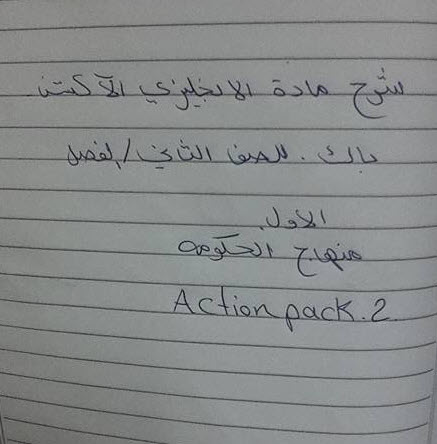 شرح مادة الانجليزي الآكشن
باك. للصف الثاني / الفصل
الاول.
منهاج الحكومه
Action pack.2